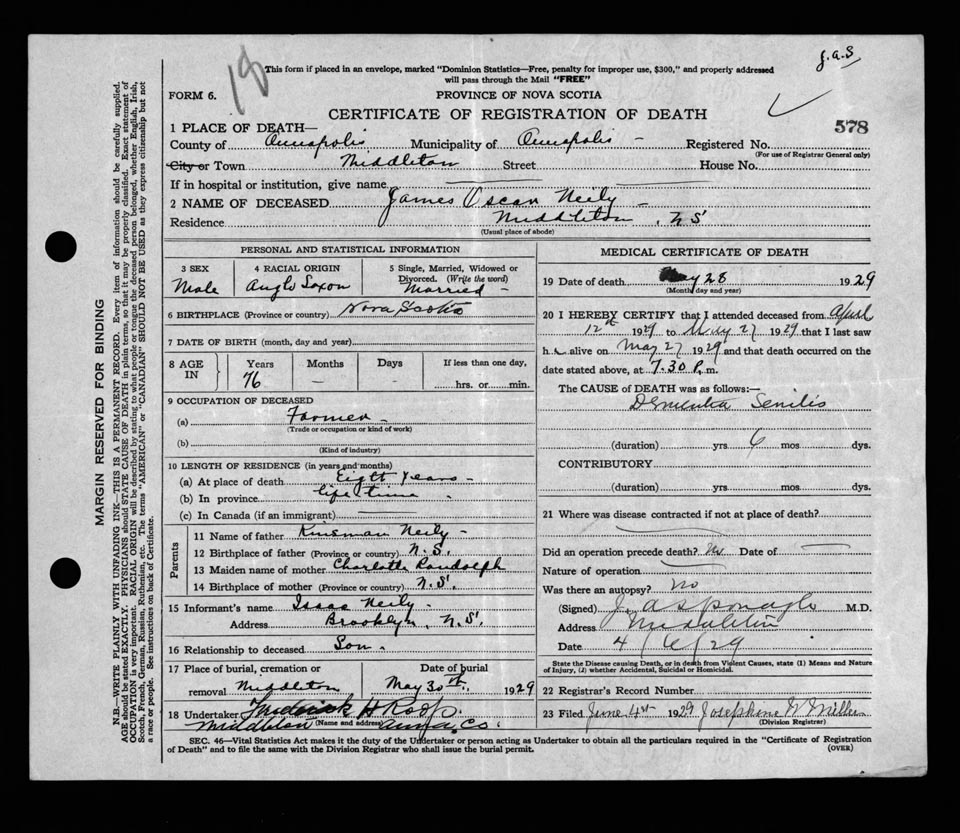 18
J.A.S
This form if placed in an envelope, marked "Dominion Statistics—Free, penalty for improper use, $300," and properly addressed
will pass through the Mail "FREE"
FORM 6.
PROVINCE OF NOVA SCOTIA
CERTIFICATE OF REGISTRATION OF DEATH
578
1 PLACE OF DEATH—
County of Annapolis Municipality of Annapolis — Registered No.
(For use of Registrar General only)
City or Town Middleton Street House No.
If in hospital or institution, give name
2 NAME OF DECEASED James Oscar Neily —
Residence Middleton, N S
(Usual place of abode)
PERSONAL AND STATISTICAL INFORMATION
3 SEX 4 RACIAL ORIGIN 5 Single, Married, Widowed or
Divorced. (Write the word)
Male Anglo Saxon Married —
6 BIRTHPLACE (Province or country) Nova Scotia
7 DATE OF BIRTH (month, day and year)
8 AGE IN Years Months Days If less than one day,
76 — — hrs. or min.
9 OCCUPATION OF DECEASED
(a) Farmer
(Trade or occupation or kind of work)
(b)
(Kind of industry)
10 LENGTH OF RESIDENCE (in years and months)
(a) At place of death Eight Years —
(b) In province life time
(c) In Canada (if an immigrant)
Parents
11 Name of father Kinsman Neily —
12 Birthplace of father (Province or country) N.S.
13 Maiden name of mother Charlotte Randolph
14 Birthplace of mother (Province or country) N.S.
15 Informant's name Isaac Neily —
Address Brooklyn, N.S.
16 Relationship to deceased Son.
17 Place of burial, cremation or Date of burial
removal Middleton May 30th, 1929
18 Undertaker Frederick H Roop.
Middleton (Name and address) Anna. Co.
MEDICAL CERTIFICATE OF DEATH
19 Date of death May 28 1929
(Month, day and year)
20 I HEREBY CERTIFY that I attended deceased from April
12th 1929 to May 27 1929 that I last saw
h alive on May 27 1929 and that death occurred on the
date stated above, at 7.30 P.m.
The CAUSE OF DEATH was as follows:—
Dementia Senilis
(duration) yrs 6 mos dys.
CONTRIBUTORY
(duration) yrs. mos. dys.
21 Where was disease contracted if not at place of death?
Did an operation precede death? No Date of
Nature of operation
Was there an autopsy? No
(Signed) J. A Sponagle M.D.
Address Middleton
Date 4/6/29
State the Disease causing Death, or in death from Violent Causes, state (1) Means and Nature
of Injury, (2) whether Accidental, Suicidal or Homicidal.
22 Registrar's Record Number
23 Filed June 4th 1929 Josephine
(Division Registrar)
SEC. 46—Vital Statistics Act makes it the duty of the Undertaker or person acting as Undertaker to obtain all the particulars required in the "Certificate of Registration
of Death" and to file the same with the Division Registrar who shall issue the burial permit.
(OVER)
MARGIN RESERVED FOR BINDING
N.B.—WRITE PLAINLY WITH UNFADING INK—THIS IS A PERMANENT RECORD. Every item of information should be carefully supplied.
AGE should be stated EXACTLY. PHYSICIANS should STATE CAUSE OF DEATH in plain terms, so that it may be properly classified. Exact statement of
OCCUPATION is very important. RACIAL ORIGIN will be described by stating to what people or tongue the deceased person belonged, whether English, Irish,
Scotch, French, German, Russian, Ruthenian, etc. The terms "AMERICAN" or "CANADIAN" SHOULD NOT BE USED as they express citizenship but not
a race or people. See instructions on back of Certificate.